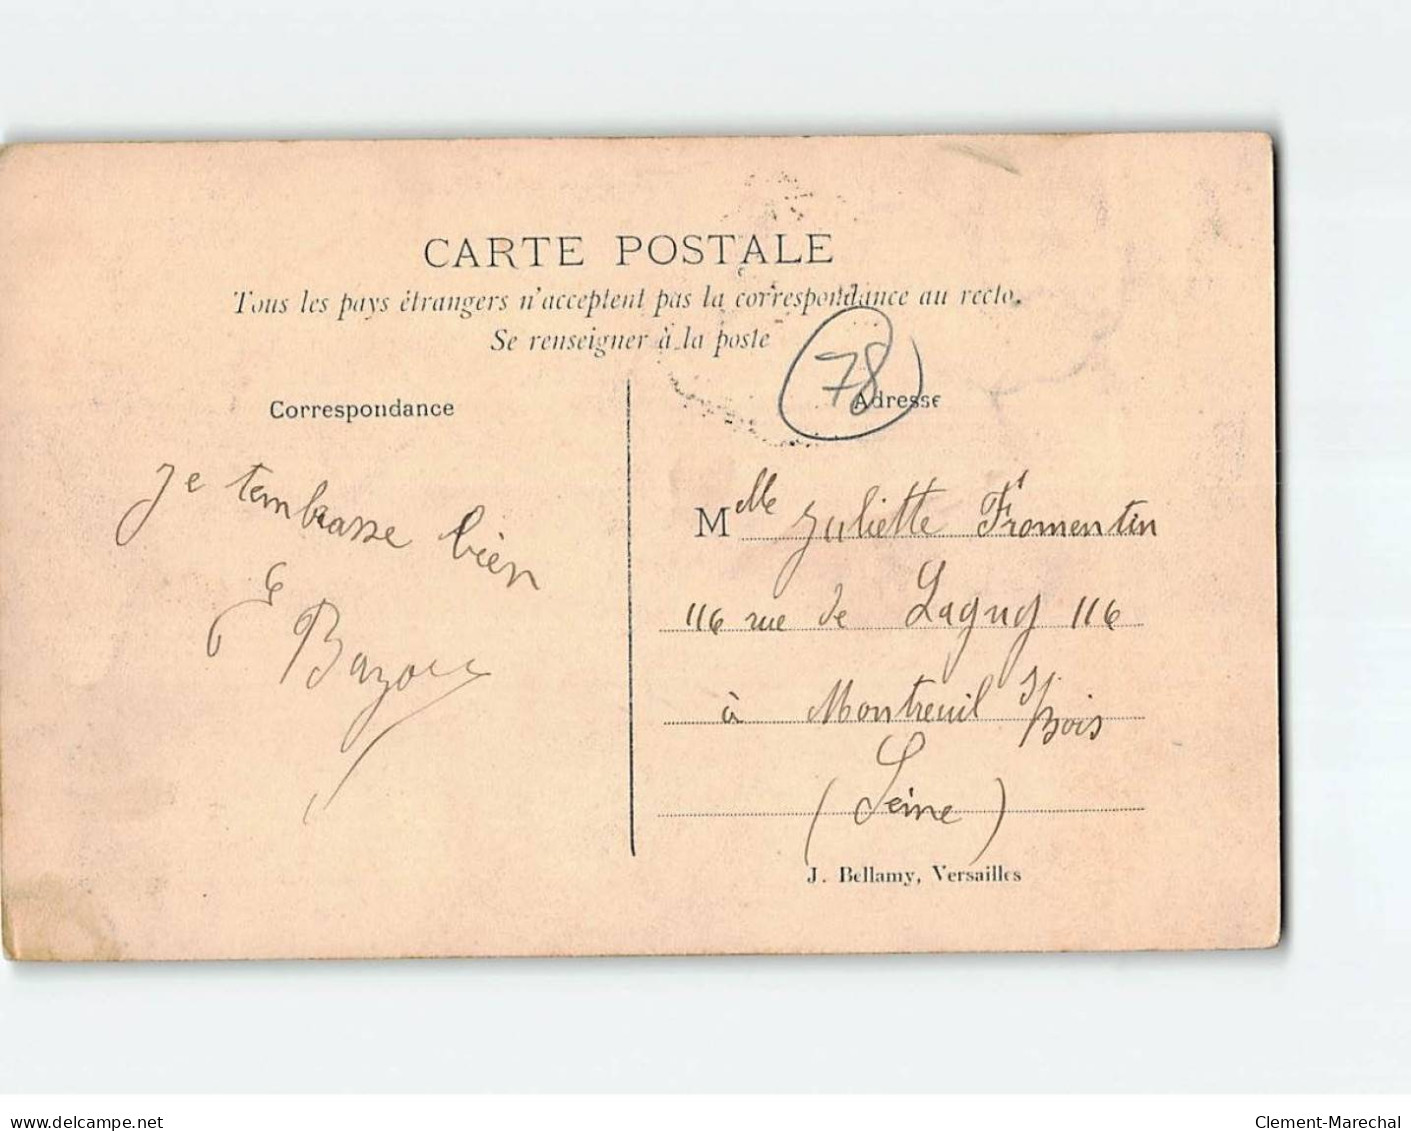 CARTE POSTALE
Tous les pays étrangers n'acceptent pas la correspondance au recto.
Se renseigner à la poste
78
Correspondance
Adresse
Je tembrasse bien
Mlle Juliette Fromentin
116 rue de Lagny 116
à Montreuil s/Bois
(Seine)
J. Bellamy, Versailles
www.delcampe.net
Clement-Marechal